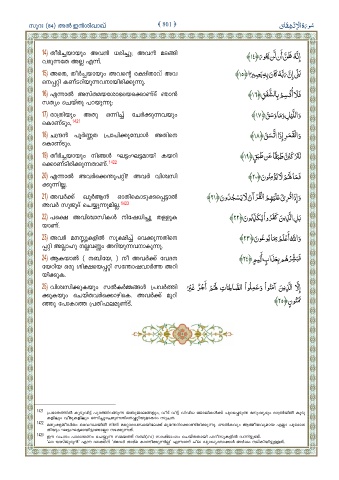 സൂറ: (84) അൽ ഇൻശിഖാഖ്
( 801 )
سورة الإنشقاق
14) തീർച്ചയായും അവൻ ധരിച്ചു; അവൻ മടങ്ങി
വരുന്നതേ അല്ല എന്ന്.
إِنَّهُ ظَنَّ أَن لَّن يَحُورَ ﴿١٤﴾
15) അതെ, തീർച്ചയായും അവന്റെ രക്ഷിതാവ് അവ
നെപ്പറ്റി കണ്ടറിയുന്നവനായിരിക്കുന്നു.
بَلَىٰ إِنَّ رَبَّهُ كَانَ بِهِ بَصِيرًا ﴿١٥﴾
16) എന്നാൽ അസ്തമയശോഭയെക്കൊണ്ട് ഞാൻ
സത്യം ചെയ്തു പറയുന്നു;
فَلَا أُقْسِمُ بِالشَّفَقِ ﴿١٦﴾
17) രാത്രിയും അതു ഒന്നിച്ച് ചേർക്കുന്നവയും
കൊണ്ടും.
وَاللَّيْلِ وَمَا وَسَقَ ﴿١٧﴾
18) ചന്ദ്രൻ പൂർണ്ണത പ്രാപിക്കുമ്പോൾ അതിനെ
കൊണ്ടും.
وَالْقَمَرِ إِذَا اتَّسَقَ ﴿١٨﴾
19) തീർച്ചയായും നിങ്ങൾ ഘട്ടംഘട്ടമായി കയറി
ക്കൊണ്ടിരിക്കുന്നതാണ്.
لَتَرْكَبُنَّ طَبَقًا عَن طَبَقٍ ﴿١٩﴾
20) എന്നാൽ അവർക്കെന്തുപറ്റി? അവർ വിശ്വസി
ക്കുന്നില്ല.
فَمَا لَهُمْ لَا يُؤْمِنُونَ ﴿٢٠﴾
21) അവർക്ക് ഖുർആൻ ഓതികൊടുക്കപ്പെട്ടാൽ
അവർ സുജൂദ് ചെയ്യുന്നുമില്ല.
وَإِذَا قُرِئَ عَلَيْهِمُ الْقُرْآنُ لَا يَسْجُدُونَ ﴿٢١﴾
22) പക്ഷേ അവിശ്വാസികൾ നിഷേധിച്ചു തള്ളുക
യാണ്.
بَلِ الَّذِينَ كَفَرُوا يُكَذِّبُونَ ﴿٢٢﴾
23) അവർ മനസ്സുകളിൽ സൂക്ഷിച്ച് വെക്കുന്നതിനെ
പ്പറ്റി അല്ലാഹു നല്ലവണ്ണം അറിയുന്നവനാകുന്നു.
وَاللَّهُ أَعْلَمُ بِمَا يُوعُونَ ﴿٢٣﴾
24) ആകയാൽ ( നബിയേ, ) നീ അവർക്ക് വേദന
യേറിയ ഒരു ശിക്ഷയെപ്പറ്റി സന്തോഷവാർത്ത അറി
യിക്കുക.
فَبَشِّرْهُم بِعَذَابٍ أَلِيمٍ ﴿٢٤﴾
25) വിശ്വസിക്കുകയും സൽകർമ്മങ്ങൾ പ്രവർത്തി
ക്കുകയും ചെയ്തവർക്കൊഴികെ. അവർക്ക് മുറി
ഞ്ഞു പോകാത്ത പ്രതിഫലമുണ്ട്.
إِلَّا الَّذِينَ آمَنُوا وَعَمِلُوا الصَّالِحَاتِ لَهُمْ أَجْرٌ غَيْرُ
مَمْنُونٍ ﴿٢٥﴾